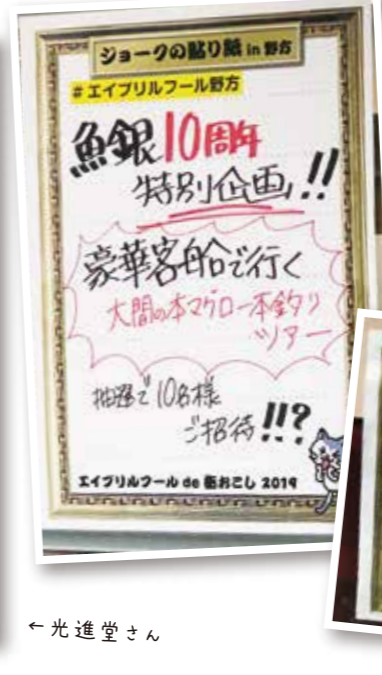 ジョークの貼り紙 in 野方
#エイプリルフール野方
魚銀10周年
特別企画!!
豪華客船で行く
大間の本マグロ一本釣り
ツアー
抽選で10名様
ご招待!!?
エイプリルフール de 街おこし 2019
←光進堂さん